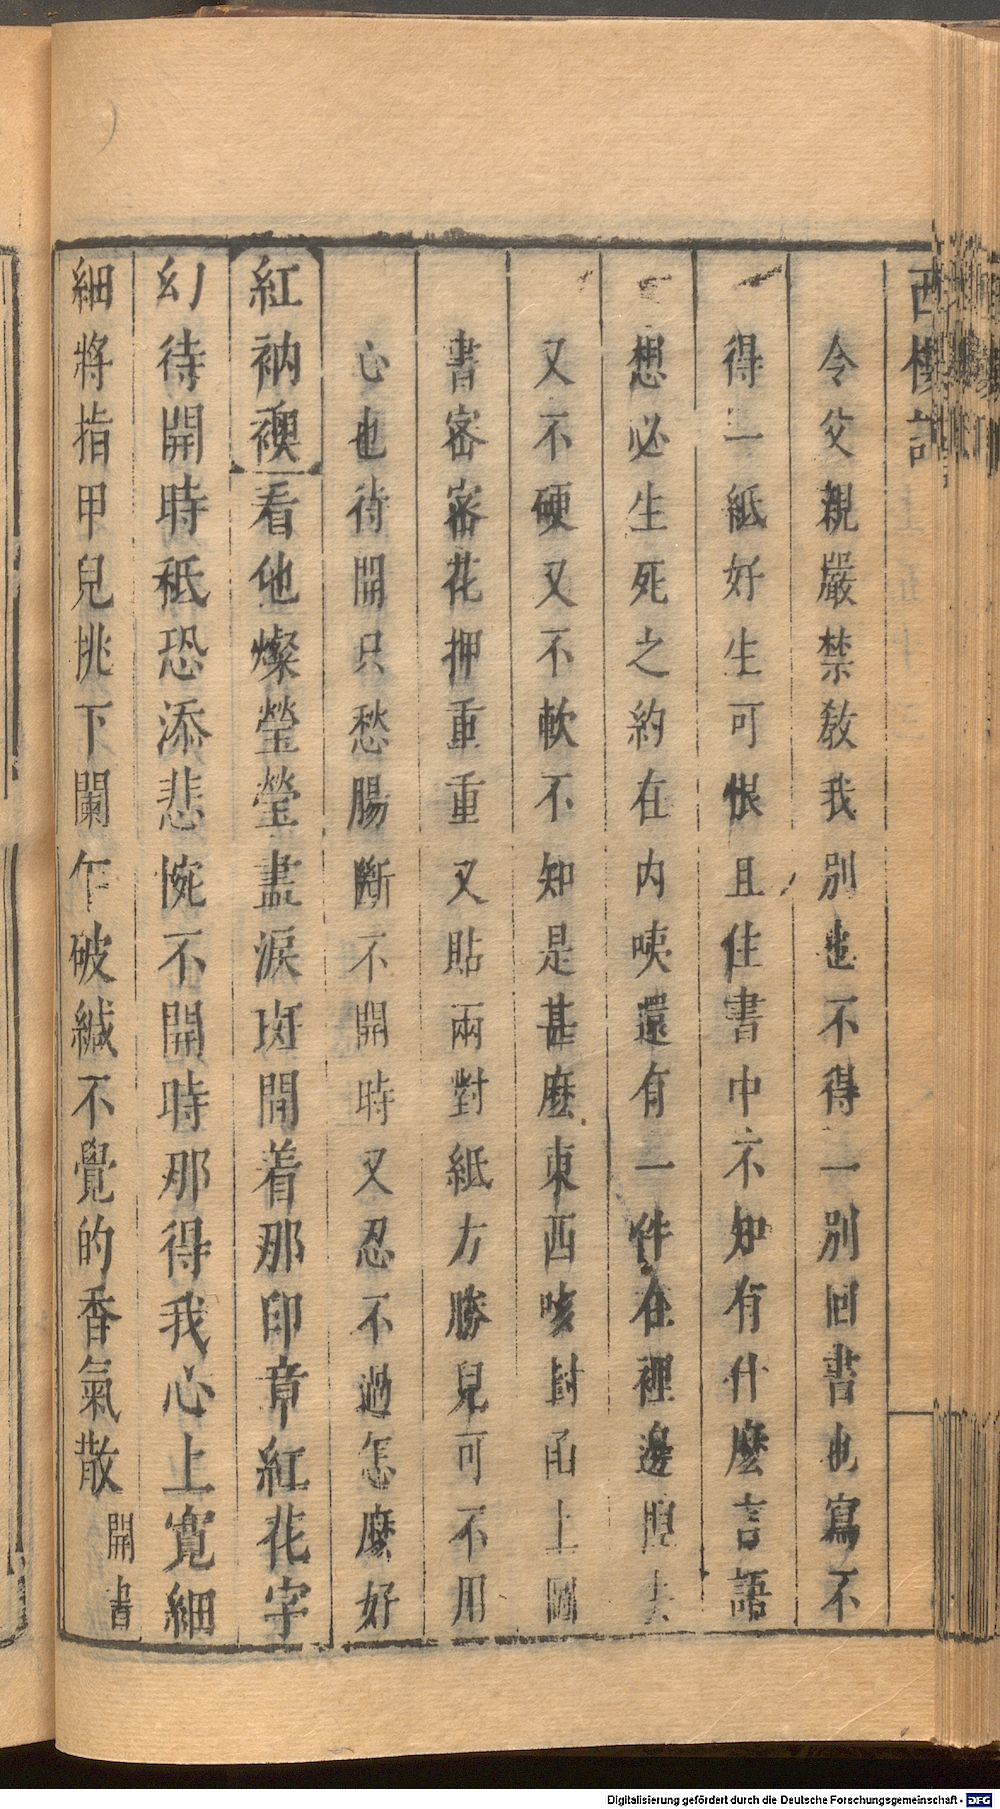 西樓記
令父親嚴禁教我別也不得一別回書也寫不
得一紙好生可恨且住書中不知有什麼言語
想必生死之約在內咦還有一件在裡邊
又不硬又不軟不知是甚麽東西咳封函上圖
書密密花押重重又貼兩對紙方勝兒可不用
心也待開只愁腸斷不開時又忍不過怎麼好
紅衲襖看他燦瑩瑩盡淚斑閒着那印章紅花字
幻待開時秪恐添悲惋不開時那得我心上寬細
細將指甲兒挑下闌乍破緘不覺的香氣散開書
Digitalisierung gefördert durch die Deutsche Forschungsgemeinschaft - DFG